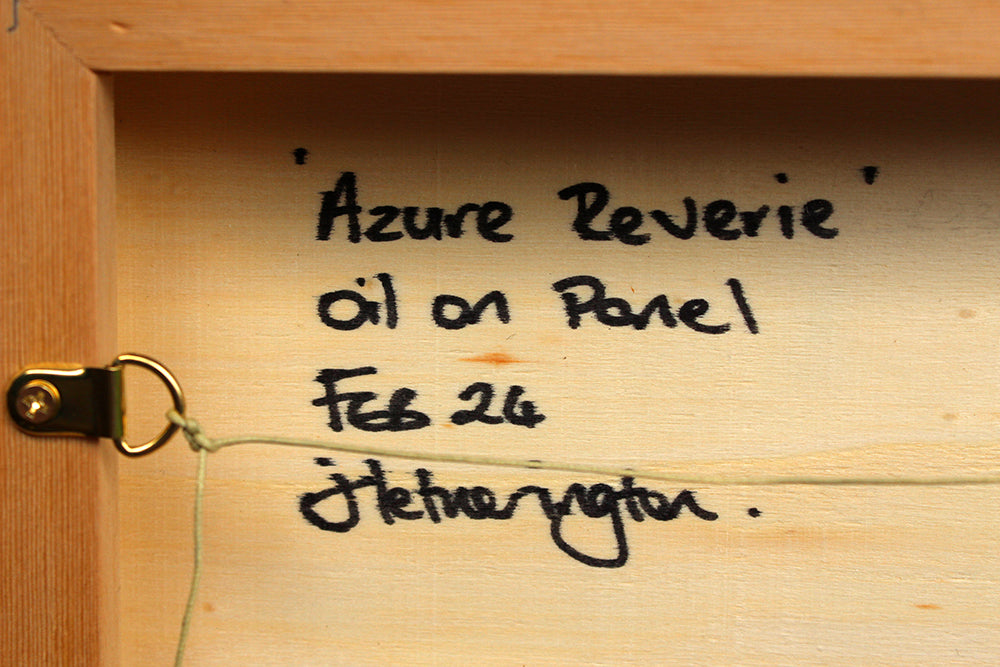 'Azure Reverie'
oil on Panel
Feb 24
jHetherington.